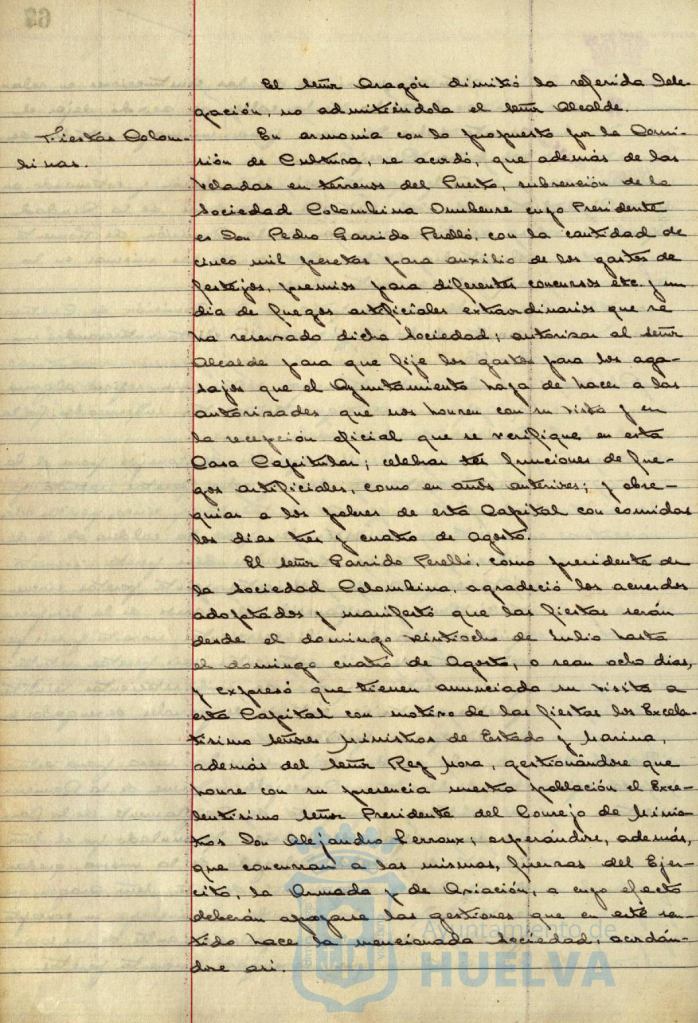 63
El señor Aragón dimitió la referida Dele-
gación, no admitiéndola el señor Alcalde.
Fiestas Colom-
binas.
En armonia con lo propuesto por la Comi-
sión de Cultura, se acordó, que además de las
veladas en terrenos del Puerto, subvención de la
Sociedad Colombina Onubense cuyo Presidente
es Don Pedro Garrido Perelló, con la cantidad de
cinco mil pesetas para auxilio de los gastos de
festejos, premios para diferentes concursos etc. y un
dia de fuegos artificiales extraordinarios que se
ha reservado dicha Sociedad; autorizar al señor
Alcalde para que fije los gastos para los aga-
sajos que el Ayuntamiento haya de hacer a las
autoridades que nos honren con su visita y en
la recepción oficial que se verifique en esta
Casa Capitular; celebrar tres funciones de fue-
gos artificiales, como en años anteriores; y obse-
quiar a los pobres de esta Capital con comidas
los dias tres y cuatro de Agosto.
El señor Garrido Perelló, como presidente de
la Sociedad Colombina, agradeció los acuerdos
adoptados y manifestó que las fiestas serán
desde el domingo veintiocho de Julio hasta
el domingo cuatro de Agosto, o sean ocho dias,
y expresó que tienen anunciada su visita a
esta Capital con motivo de las fiestas los Excelen-
tisimo señores Ministros de Estado y Marina,
además del señor Rey Mora, gestionándose que
honre con su presencia nuestra población el Exce-
lentisimo señor Presidente del Consejo de Minis-
tros Don Alejandro Lerroux; esperándose, además,
que concurran a las mismas, fuerzas del Ejer-
cito, la Armada y de Aviación, a cuyo efecto
deberán apoyarse las gestiones que en este sen-
tido hace la mencionada Sociedad; acordán-
dose asi.
Ayuntamiento de
HUELVA